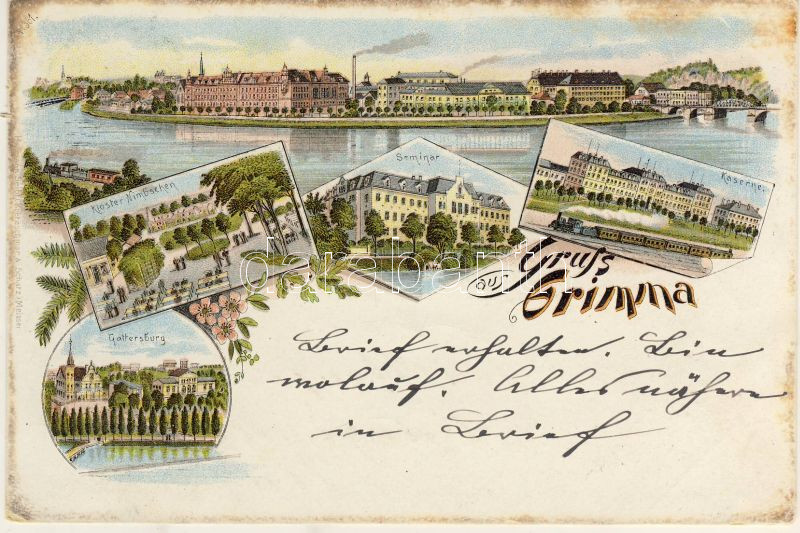 Kloster Nimbschen
Seminar
Kaserne.
Gruss
aus
Grimma
Gattersburg
Brief erhalten. Bin
wolauf. Alles nähere
in Brief